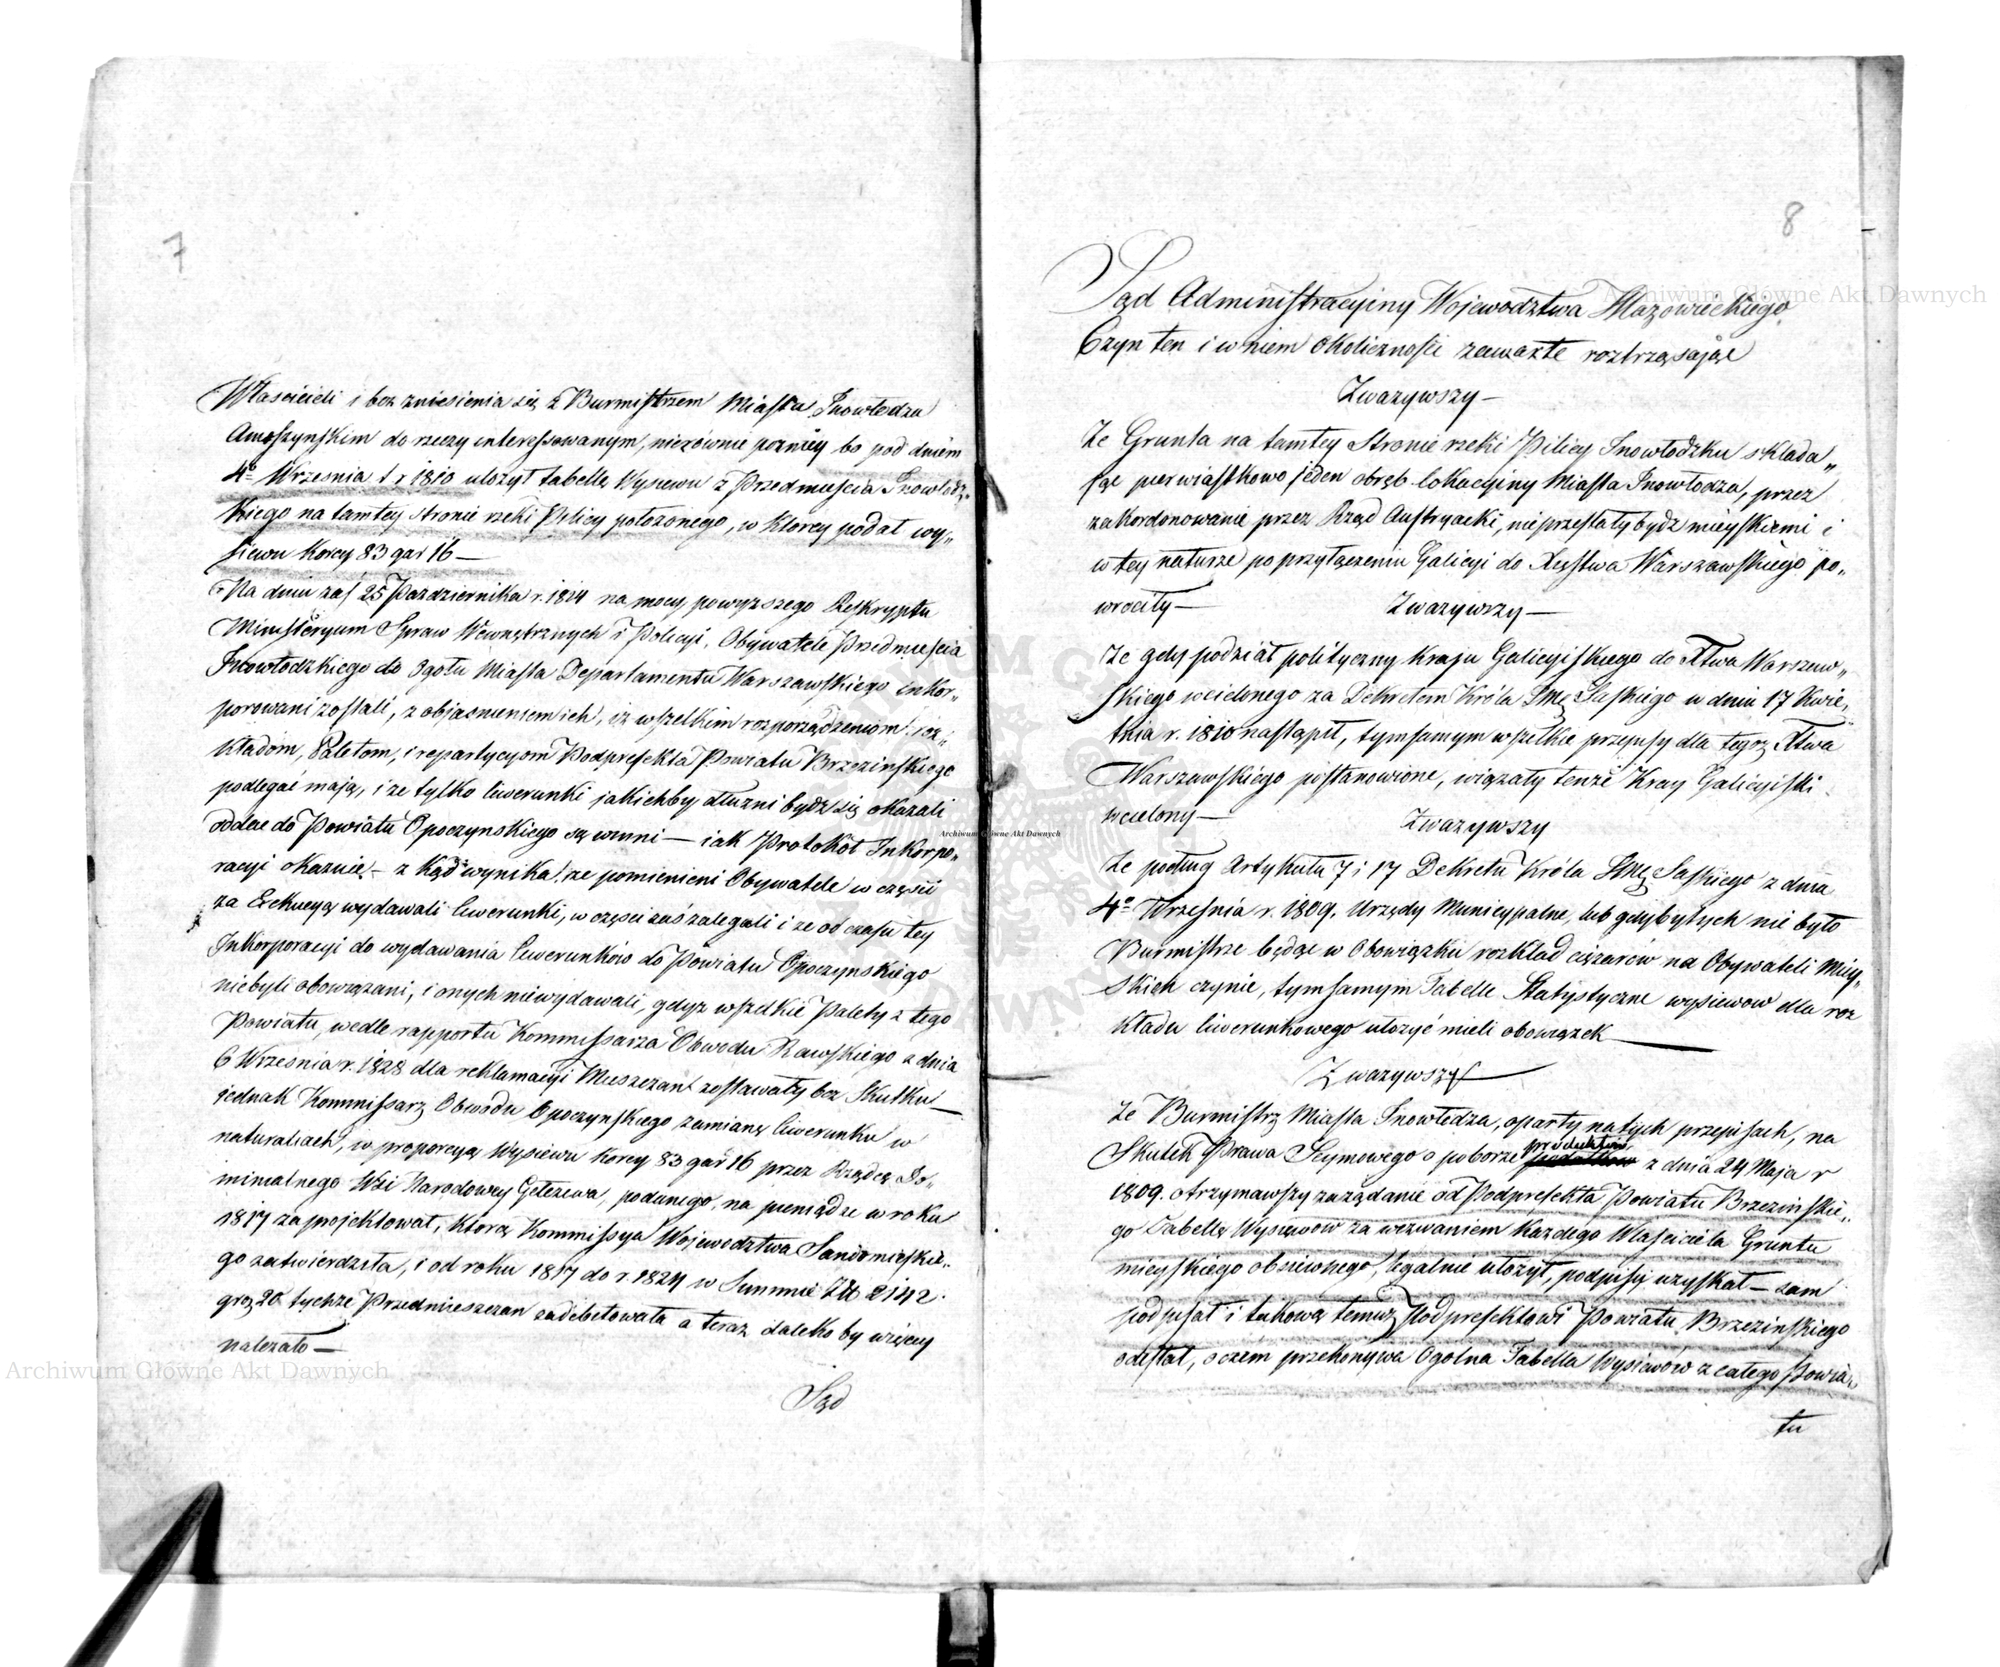 7
Właścicieli i bez zniesienia się z Burmistrzem Miasta Inowłodza
Amoszynskim do rzeczy interessowanym, nierównie poźniey bo pod dniem
4º Września t r 1810 ułożył tabellę Wysiewu z Przedmieścia Inowłodz„
kiego na tamtey stronie rzeki Pilicy położonego, w ktorey podał wy„
siewu Korcy 83 gar 16 —
Na dniu zaś 25 Pazdziernika r. 1814 na mocy powyższego Reskryptu
Ministeryum Spraw Wewnętrznych i Policyi, Obywatele Przedmieścia
Inowłodzkiego do Ogółu Miasta Departamentu Warszawskiego inkor„
porowani zostali, z objasnieniem ich, iż wszelkim rozporządzeniom, roz„
kładom, Paletom, i repartycyom Podprefekta Powiatu Brzezinskiego
podlegać mają, i że tylko liwerunki jakichby dłużni bydź się okazali
oddać do Powiatu Opoczynskiego są winni — iak Protokół Inkorpo„
racyi okazuie — z kąd wynika, że pomienieni Obywatele w części
za Exekucyą wydawali liwerunki, w części zaś zalegali i że od czasu tey
Inkorporacyi do wydawania liwerunków do Powiatu Opoczynskiego
niebyli obowiązani, i onych niewydawali, gdyż wszelkie Palety z tego
Powiatu, wedle rapportu Kommissarza Obwodu Rawskiego z dnia
6 Września r. 1828 dla reklamacyi Mieszczan zostawały bez Skutku —
jednak Kommissarz Obwodu Opoczynskiego zamianę liwerunku w
naturaliach, w proporcyą Wysiewu Korcy 83 gar 16 przez Rządcę Do„
minialnego Wsi Narodowey podanego, na pieniądze w roku
1817 zaprojektował, którą Kommissya Województwa Sandomierskie„
go zatwierdziła, i od roku 1817 do r. 1824 w Summie Złł 2142
gro 20 tychże Przedmieszczan zadebetowała a teraz daleko by więcey
należało —
Sąd
8
Sąd Administracyiny Wojewodztwa Mazowieckiego
Czyn ten i w niem okoliczności zawarte roztrząsając
Zważywszy —
Że Grunta na tamtey Stronie rzeki Pilicy Inowłodzku składa„
jąc pierwiastkowo jeden obręb lokacyiny Miasta Inowłodza, przez
zakordonowanie przez Rząd Austryacki, nieprzestały bydź mieyskiemi i
w tey naturze po przyłączeniu Galicyi do Xięstwa Warszawskiego po„
wróciły — Zważywszy —
Że gdy podział polityczny Kraju Galicyiskiego do Xtwa Warszaw„
skiego wcielonego za Dekretem Króla Jmę Saskiego w dniu 17 Kwie„
tnia r. 1810 nastąpił, tymsamym wszelkie przepisy dla tegoż Xtwa
Warszawskiego postanowione, wiązały tenże Kray Galicyiski
wcielony — Zważywszy
Że podług Artykułu 7 i 17 Dekretu Króla Jmę Saskiego z dnia
4º Września r. 1809. Urzędy Municypalne, lub gdyby tych nie było
Burmistrze będąc w Obowiązku rozkład ciężarów na Obywateli Miey„
skich czynić, tymsamym Tabelle Statystyczne wysiewow dla roz
kładu liwerunkowego ułożyć mieli obowiązek —
Zważywszy —
Że Burmistrz Miasta Inowłodza, oparty na tych przepisach, na
Skutek Prawa Seymowego o poborze produktów z dnia 24 Maja r
1809. otrzymawszy zażądanie od Podprefekta Powiatu Brzezinskie„
go Tabellę Wysiewow za wezwaniem każdego Właściciela Gruntu
mieyskiego obsianego, legalnie ułożył, podpisy uzyskał — sam
podpisał i takową temuż Podprefektowi Powiatu Brzezinskiego
odesłał, o czem przekonywa Ogolna Tabella Wysiewów z całego Powia„
tu
Archiwum Główne Akt Dawnych
Archiwum Główne Akt Dawnych
Archiwum Główne Akt Dawnych